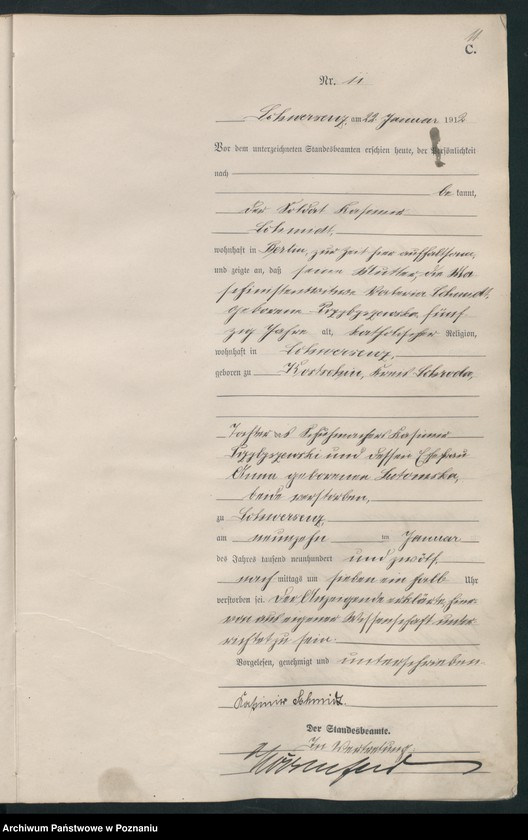 11
C.
Nr. 11
Schwersenz, am 22 Januar 1912
Vor dem unterzeichneten Standesbeamten erschien heute, der Persönlichkeit
nach
be kannt,
der Soldat Kasimir
Schmidt,
wohnhaft in Berlin, zur Zeit hier aufhaltsam,
und zeigte an, daß seine Mutter, die Ma
schinistenwitwe Schmidt,
geborene fünf
zig Jahre alt, katholischer Religion,
wohnhaft in Schwersenz,
geboren zu Kostschin, Kreis Schroda,
Tochter des Schuhmachers Kasimir
und dessen Ehefrau
Anna geborenen Sutowska,
beide verstorben,
zu Schwersenz,
am neunzehn im Januar
des Jahres tausend neunhundert und zwölf,
nach mittags um sieben ein halb Uhr
verstorben sei. Der Anzeigende erklärte, hier
von aus eigener Wissenschaft unter
richtet zu sein.
Vorgelesen, genehmigt und unterschrieben
Kasimir Schmidt
Der Standesbeamte.
In Vertretung
Archiwum Państwowe w Poznaniu